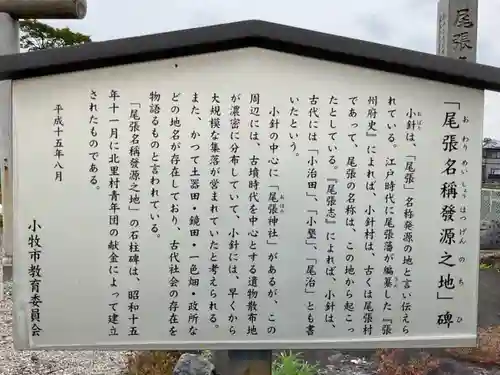 尾張
「尾張名稱發源之地」碑
おわりめいしょうはつげんのちひ
小針は、「尾張」名称発源の地と言い伝えら
おばり
れている。江戸時代に尾張藩が編纂した『張
州府史』によれば、小針村は、古くは尾張村
であって、尾張の名称は、この地から起こっ
たとしている。『尾張志』によれば、小針は、
古代には「小治田」、「小墾」、「尾治」とも書
いたという。
小針の中心に「尾張神社」があるが、この
おはり
周辺には、古墳時代を中心とする遺物散布地
が濃密に分布していて、小針には、早くから
大規模な集落が営まれていたと考えられる。
また、かつて土器田・鏡田・一色畑・政所な
どの地名が存在しており、古代社会の存在を
物語るものと言われている。
「尾張名稱發源之地」の石柱碑は、昭和十五
年十一月に北里村青年団の献金によって建立
されたものである。
平成十五年八月
小牧市教育委員会